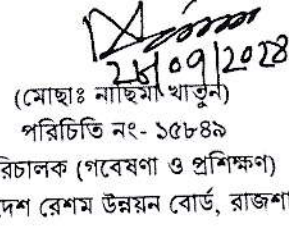 28/09/2028
(মোছাঃ নাছিমা খাতুন)
পরিচিতি নং- ১৫৮৪৯
রিচালক (গবেষণা ও প্রশিক্ষণ)
দেশ রেশম উন্নয়ন বোর্ড, রাজশা